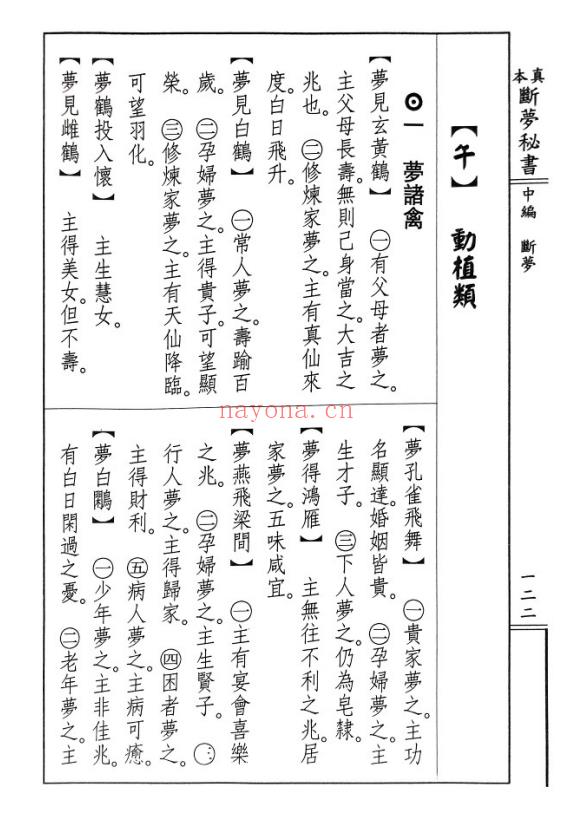 真本斷夢秘書 中編 斷夢
一二二
【午】 動植類
⊙一 夢諸禽
【夢見玄黃鶴】 ㊀有父母者夢之。
主父母長壽。無則己身當之。大吉之
兆也。㊁修煉家夢之。主有真仙來
度。白日飛升。
【夢見白鶴】 ㊀常人夢之。壽踰百
歲。㊁孕婦夢之。主得貴子。可望顯
榮。㊂修煉家夢之。主有天仙降臨。
可望羽化。
【夢鶴投入懷】 主生慧女。
【夢見雌鶴】 主得美女。但不壽。
【夢孔雀飛舞】 ㊀貴家夢之。主功
名顯達。婚姻皆貴。㊁孕婦夢之。主
生才子。㊂下人夢之。仍為皂隸。
【夢得鴻雁】 主無往不利之兆。居
家夢之。五味咸宜。
【夢燕飛梁間】 ㊀主有宴會喜樂
之兆。㊁孕婦夢之。主生賢子。
行人夢之。主得歸家。㊃困者夢之。
主得財利。㊄病人夢之。主病可癒。
【夢白鷴】 ㊀少年夢之。主非佳兆。
有白日閑過之憂。㊁老年夢之。主
nayona.cn